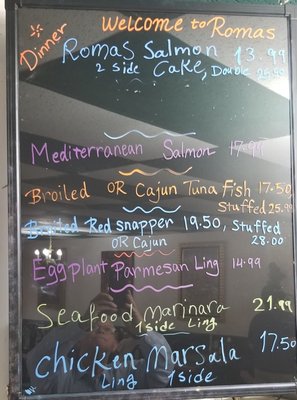 Welcome to Romas
Dinner
Romas Salmon 13.99
2 side Cake, Double 25.50
Mediterranean Salmon 17.99
Broiled OR Cajun Tuna Fish 17.50
Stuffed 25.99
Broiled Red snapper 19.50, Stuffed
OR Cajun 28.00
Eggplant Parmesan Ling 14.99
Seafood Marinara 21.99
1 side Ling
chicken Marsala 17.50
Ling 1 side